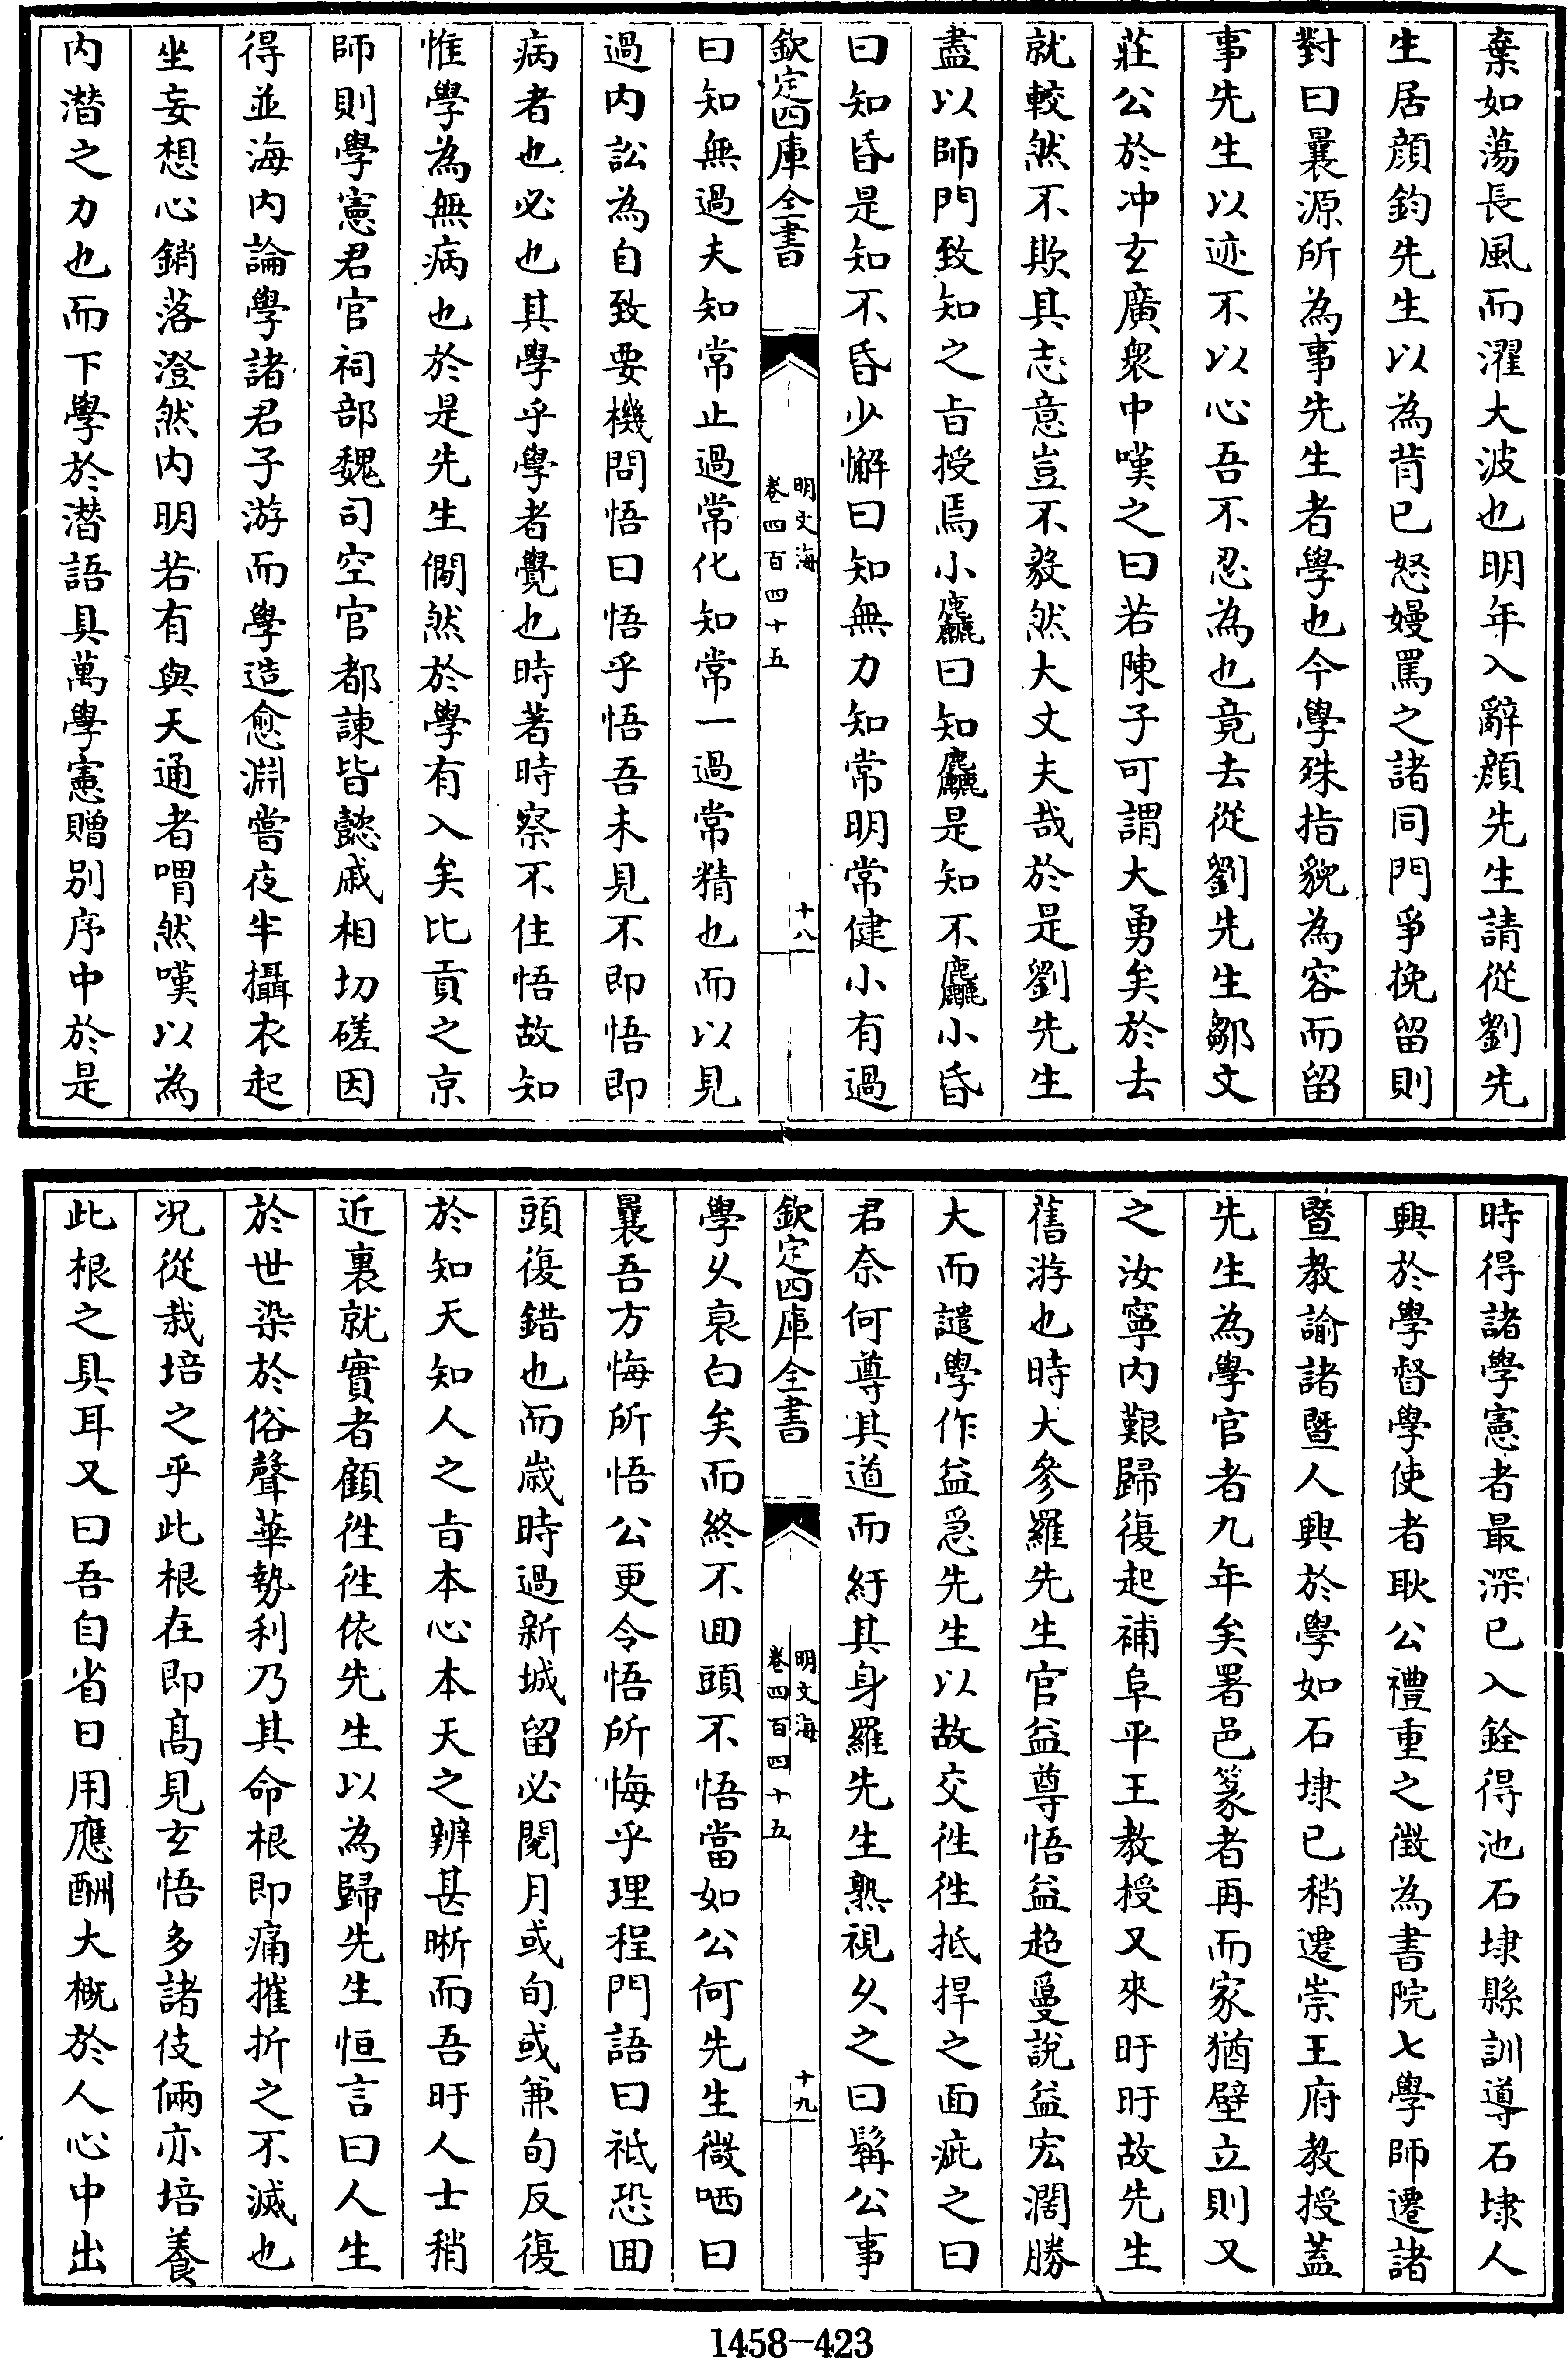 棄如蕩長風而濯大波也明年入辭顔先生請從劉先
生居顔鈞先生以為背已怒嫚罵之諸同門爭挽留則
對曰曩源所為事先生者學也今學殊指貌為容而留
事先生以迹不以心吾不忍為也竟去從劉先生鄒文
莊公於冲玄廣衆中嘆之曰若陳子可謂大勇矣於去
就較然不欺其志意豈不毅然大丈夫哉於是劉先生
盡以師門致知之㫖授焉小麤曰知麤是知不麤小昏
曰知昏是知不昏少懈曰知無力知常明常健小有過
欽定四庫全書
明文海
卷四百四十五
十八
曰知無過夫知常止過常化知常一過常精也而以見
過内訟為自致要機問悟曰悟乎悟吾未見不即悟即
病者也必也其學乎學者覺也時著時察不住悟故知
惟學為無病也於是先生僩然於學有入矣比貢之京
師則學憲君官祠部魏司空官都諫皆懿戚相切磋因
得並海内論學諸君子游而學造愈淵嘗夜半攝衣起
坐妄想心銷落澄然内明若有與天通者喟然嘆以為
内潛之力也而下學於潛語具萬學憲贈别序中於是
時得諸學憲者最深已入銓得池石埭縣訓導石埭人
興於學督學使者耿公禮重之徴為書院七學師遷諸
暨教諭諸暨人興於學如石埭已稍遷崇王府教授蓋
先生為學官者九年矣署邑篆者再而家猶壁立則又
之汝寧内艱歸復起補阜平王教授又來旴旴故先生
舊游也時大參羅先生官益尊悟益超蔓說益宏濶勝
大而譴學作益急先生以故交徃徃抵捍之面疵之曰
君奈何尊其道而紆其身羅先生熟視乆之曰髯公事
欽定四庫全書
明文海
卷四百四十五
十九
學乆裒白矣而終不囬頭不悟當如公何先生微哂曰
曩吾方悔所悟公更令悟所悔乎理程門語曰祗恐囬
頭復錯也而嵗時過新城留必閱月或旬或兼旬反復
於知天知人之㫖本心本天之辨甚晰而吾旴人士稍
近裏就實者顧徃徃依先生以為歸先生恒言曰人生
於世染於俗聲華勢利乃其命根即痛摧折之不滅也
况從栽培之乎此根在即髙見玄悟多諸伎倆亦培養
此根之具耳又曰吾自省日用應酬大概於人心中出
1458-423